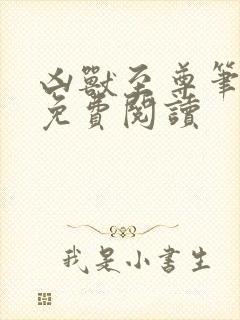 凶獸至尊筆
免費閱讀
我是小書生